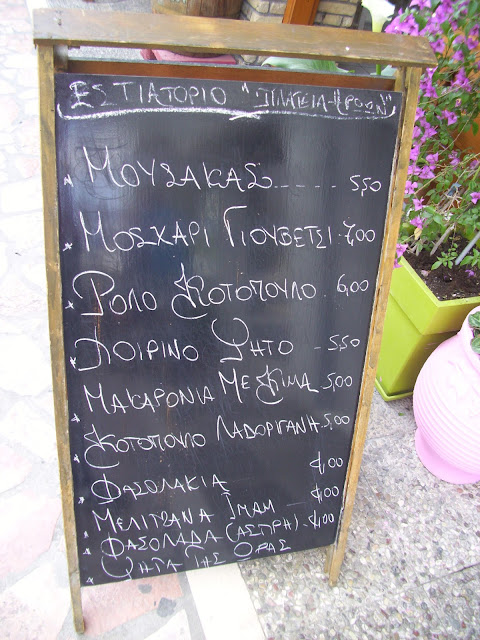 ΕΣΤΙΑΤΟΡΙΟ "ΠΛΑΤΕΙΑ ΗΡΩΩΝ"
* ΜΟΥΣΑΚΑΣ ------ 5,50
* ΜΟΣΧΑΡΙ ΓΙΟΥΒΕΤΣΙ - 7,00
* ΡΟΛΟ ΚΟΤΟΠΟΥΛΟ . 6,00
* ΧΟΙΡΙΝΟ ΨΗΤΟ - 5,50
* ΜΑΚΑΡΟΝΙΑ ΜΕ ΚΙΜΑ 5,00
* ΚΟΤΟΠΟΥΛΟ ΛΑΔΟΡΙΓΑΝΗ . 5,00
* ΦΑΣΟΛΑΚΙΑ 4,00
* ΜΕΛΙΤΖΑΝΑ ΙΜΑΜ -- 4,00
* ΦΑΣΟΛΑΔΑ (ΑΣΠΡΗ) - 4,00
* ΨΗΤΑ ΤΗΣ ΩΡΑΣ